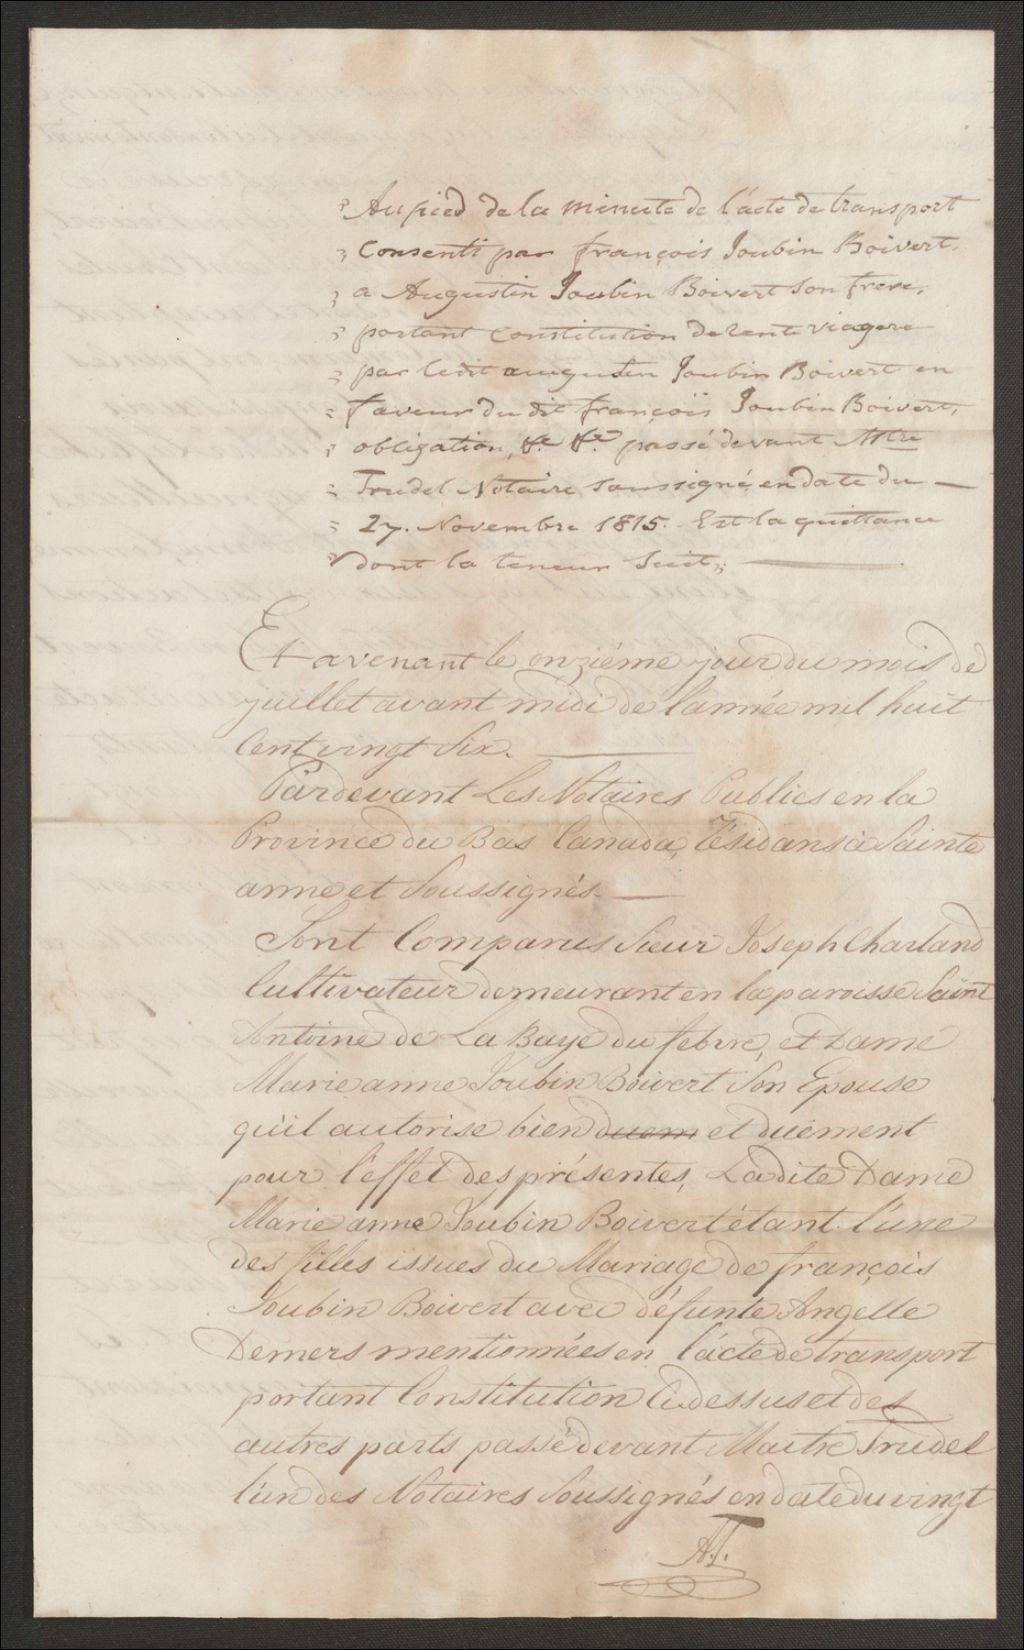 " Au pied de la minute de l'acte de transport
" Consenti par françois Joubin Boivert,
" a Augustin Joubin Boivert son frere,
" portant Constitution de rente viagere
" par ledit augustin Joubin Boivert en
" faveur du dit françois Joubin Boivert,
" obligation, &c &c passé devant Mtre
" Trudel Notaire soussigné, en date du —
" 27. Novembre 1815. Est la quittance
" dont la teneur suit,;
Et avenant le onziéme jour du mois de
juillet avant midi de l'année mil huit
Cent vingt Six.
Pardevant Les Notaires Publics en la
Province du Bas Canada, Résidans à Sainte
anne et Soussignés.
Sont Comparus Sieur Joseph Charland
Cultivateur demeurant en la paroisse Saint
Antoine de La Baye du febvre, et Dame
Marie anne Joubin Boivert Son Epouse
qu'il autorise bien duem et duëment
pour l'effet des présentes, Ladite Dame
Marie anne Joubin Boivert étant l'une
des filles issues du Mariage de françois
Joubin Boivert avec défunte Angelle
Demers mentionnées en l'acte de transport
portant Constitution Ci-dessus et des
autres parts passé devant Maitre Trudel
l'un des Notaires Soussignés en date du vingt
A.T.